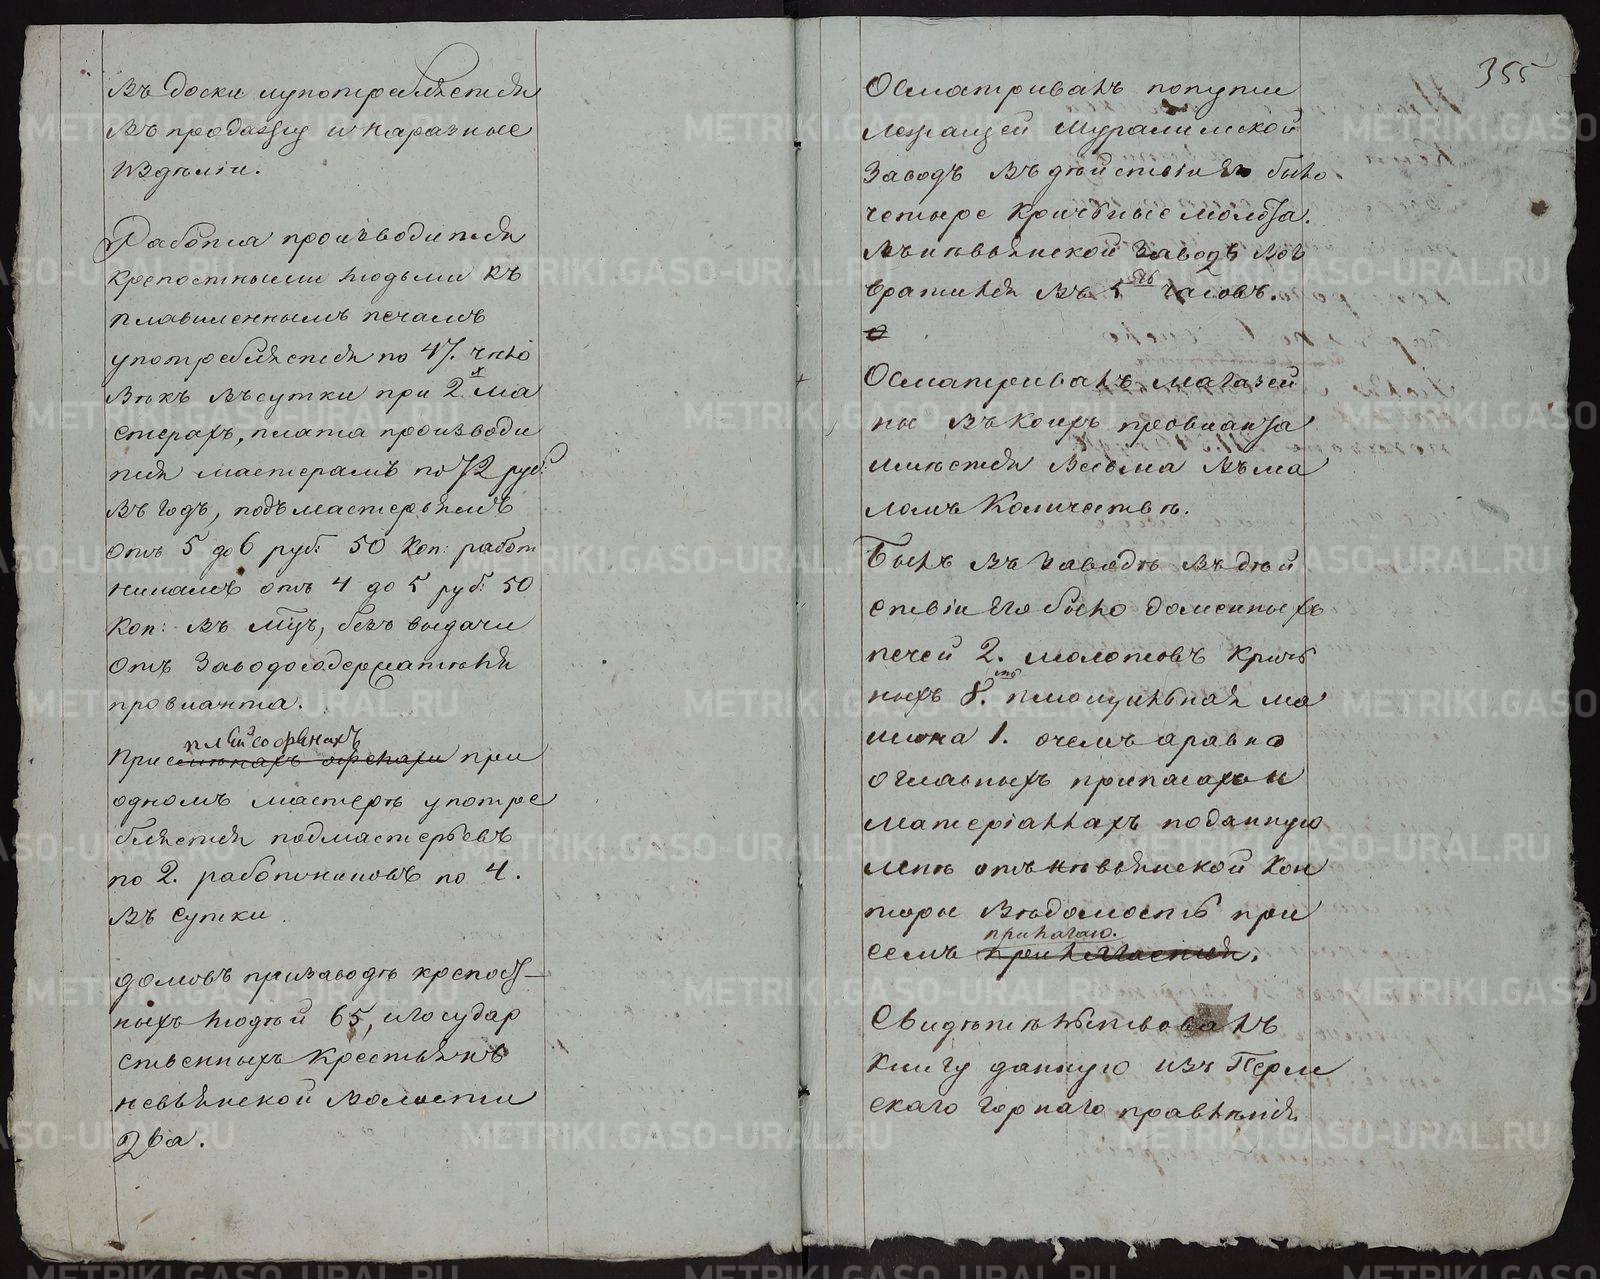 въ доски употребляется
въ продажу и наразные
изделiи.
Работа произъводится
крепостными людьми къ
плавиленнымъ печамъ
употребляется по 47. чело
векъ въсутки при 2х ма
стерахъ, плата производи
тся мастерамъ по 72 руб:
въ годъ, подъмастерьямъ
отъ 5 до 6 руб: 50 коп: работ
никамъ отъ 4 до 5 руб: 50
коп: въ мцъ, безъ выдачи
отъ Заводосодержателя
провианта.
При при
одномъ мастерѣ употре
бляется подмастерьевъ
по 2. работниковъ по 4.
въ сутки.
домовъ призаводѣ крепост
ныхъ людѣй 65, игосудар
ственныхъ крестьянъ
невьянской волости
два.
355
Осматривалъ попути
лежащей Мураминской
заводъ въ дѣйствiи было
четыре кричные молота.
Вьневьянской Заводъ воз
вратился въ 5ть часовъ.
Осматривалъ магазей
ны въ коихъ провианта
имѣется весьма въма
ломъ количествѣ.
Былъ въ заводѣ въ дѣй
ствiи Его было доменныхъ
печей 2. молотовъ крич
ныхъ 8. плющильная ма
шина 1. очемъ аравно
оглавныхъ припасахъ и
матерiаллахъ поданную
мнѣ отъ невьянской кон
торы вѣдомость при
семъ прилагаю.
прилагается.
Свидѣтельствовалъ
книгу данную изъ Перм
скаго горнаго правленiя
METRIKI.GASO-URAL.RU